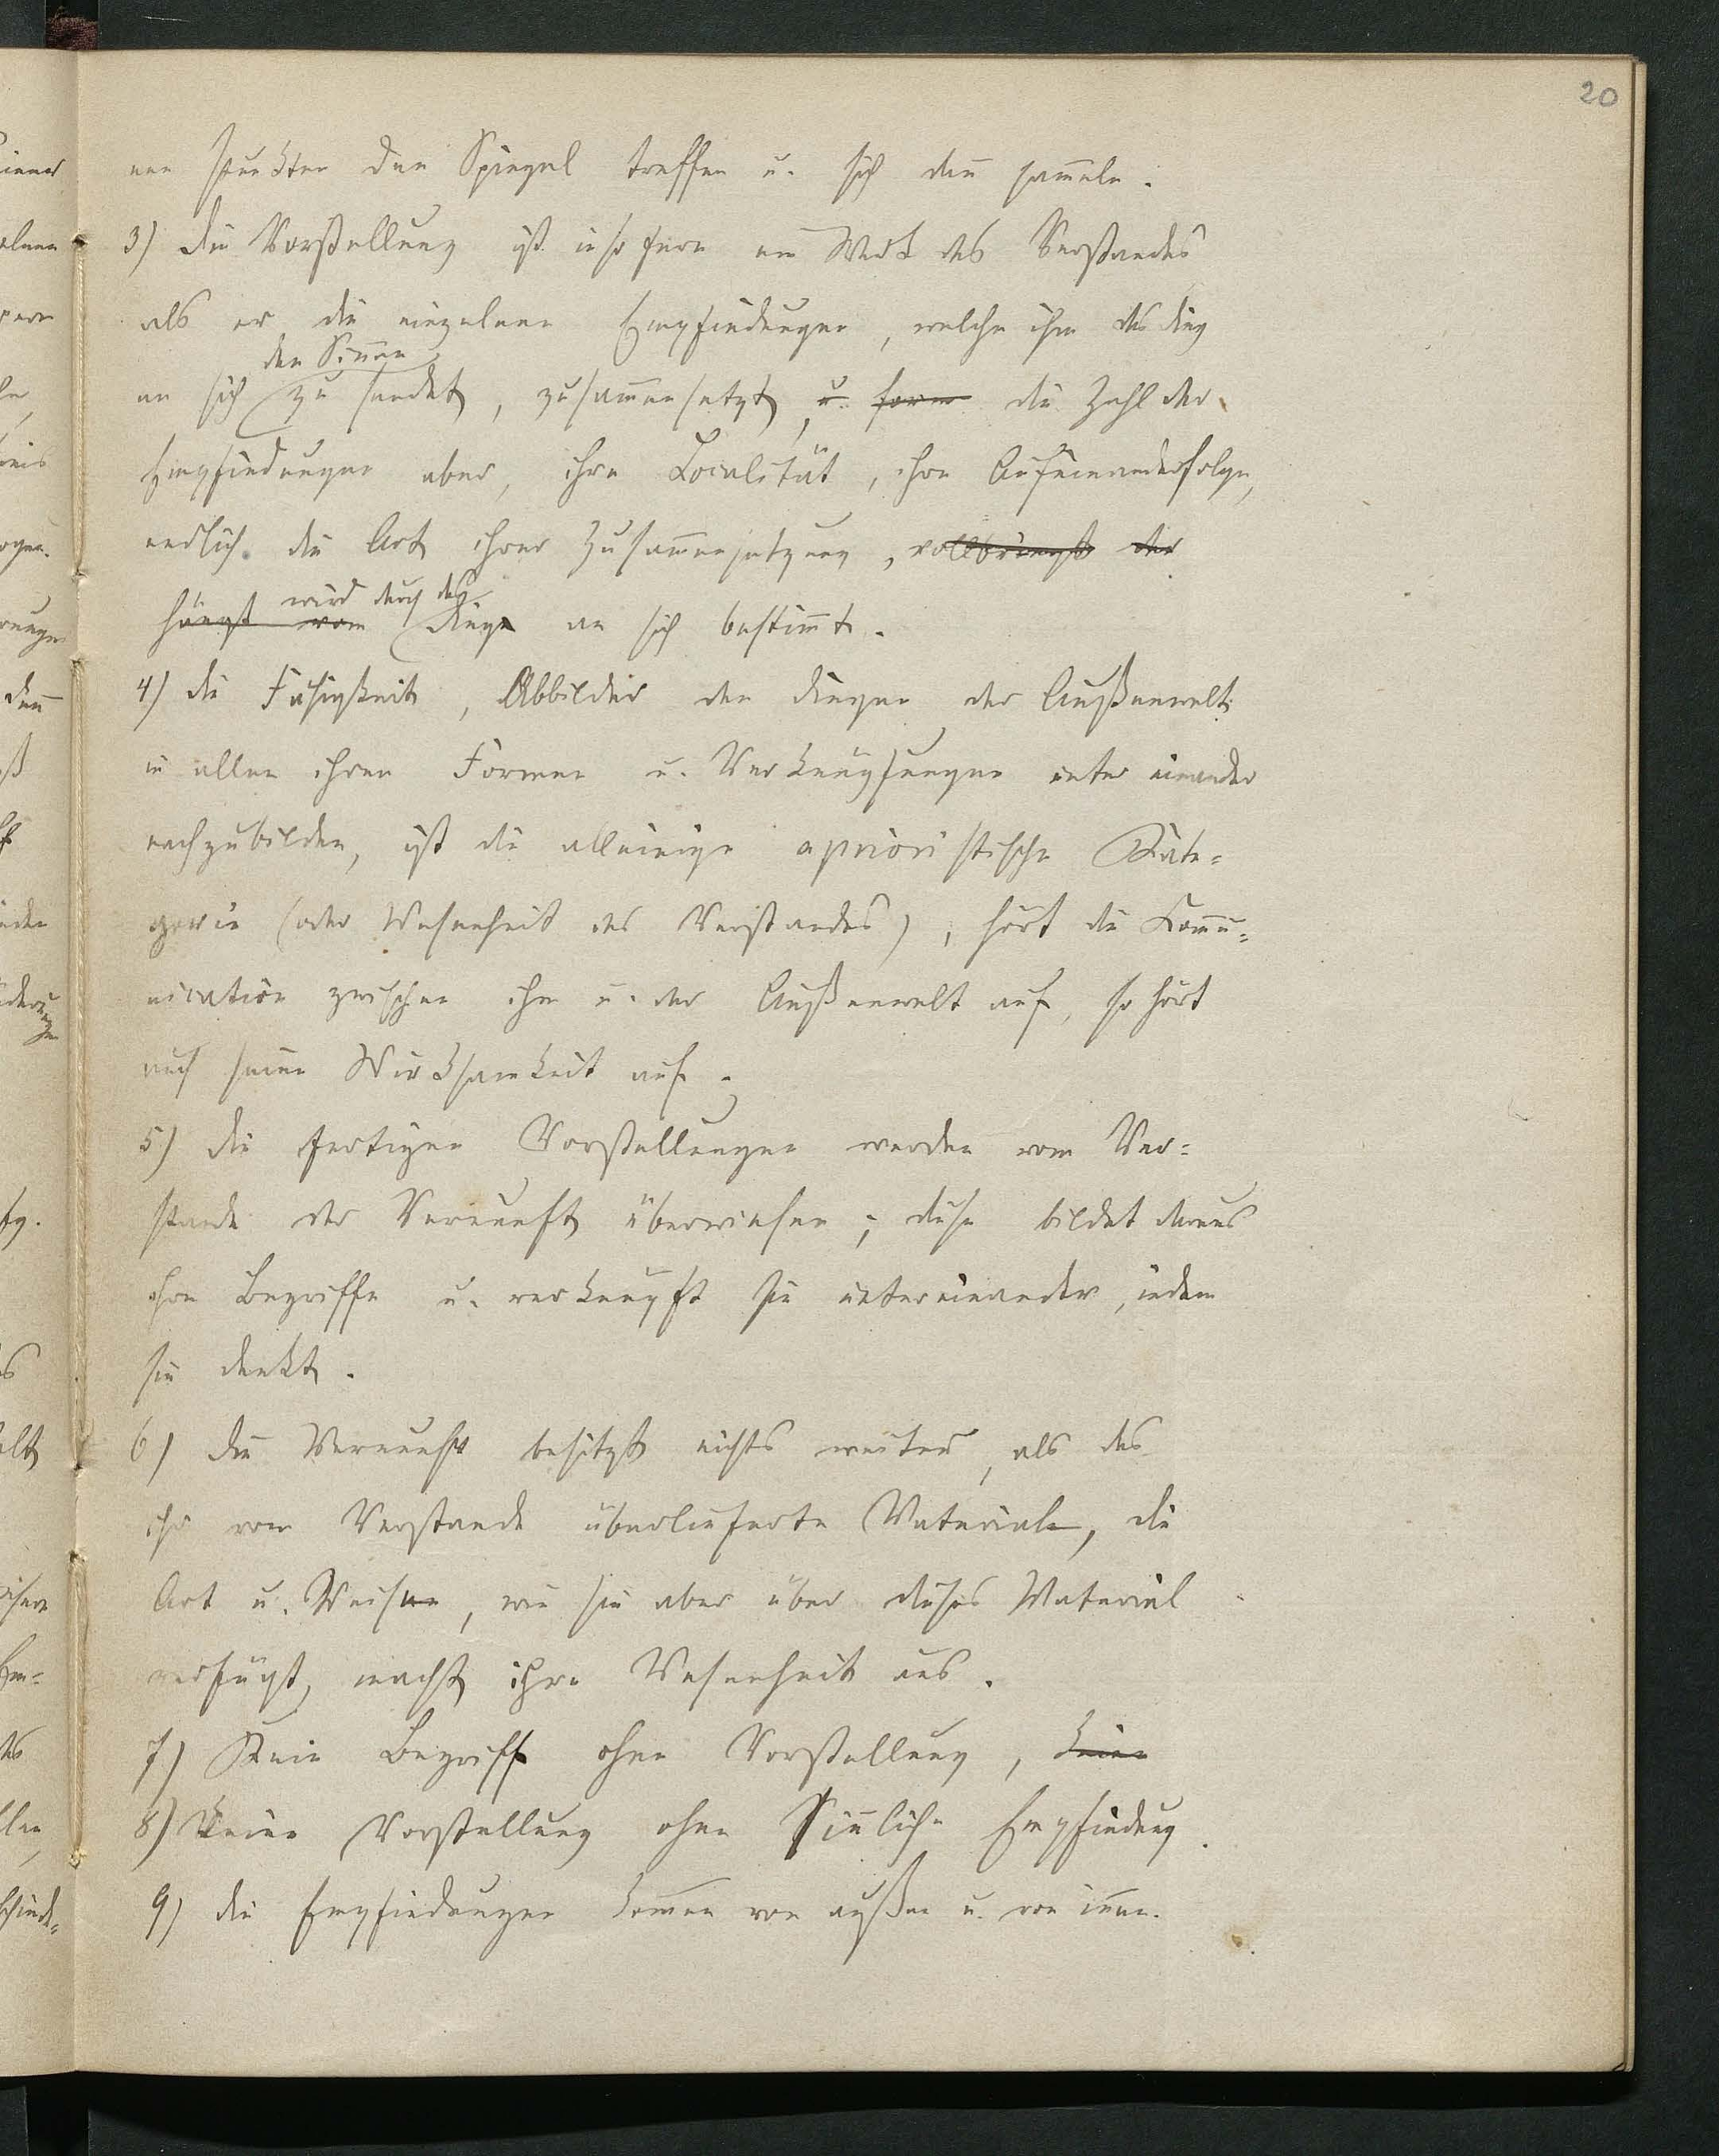 20
nen Punkten den Spiegel treffen u. sich dan̄ sam̄eln.
3) Die Vorstellung ist insofern ein Werk des Verstandes
als er die einzelnen Empfindungen, welche ihm das Ding
den Sinnen
an sich zu sendet, zusam̄ensetzt, u. form die Zahl der
Empfindungen aber, ihre Localität, ihre Aufeinanderfolge,
endlich die Art ihrer Zusam̄ensetzung, vollbringt der
wird durch das
hängt vom Dinge an sich bestim̄t.
4) die Fähigkeit, Abbilder den Dingen der Außenwelt
in allen ihren Formen u. Verknüpfungen unter einander
nachzubilden, ist die alleinige aprioristische Kate=
gorie (oder Wesenheit des Verstandes); hört die Com̄u=
nication zwischen ihm u. der Außenwelt auf, so hört
auch seine Wirksamkeit auf.
5) die fertigen Vorstellungen werden vom Ver=
stande der Vernunft überwiesen; diese bildet daraus
ihre Begriffe u. verknüpft sie untereinander, indem
sie denkt.
6) die Vernunft besitzt nichts weiter, als das
ihr vom Verstande überlieferte Material, die
Art u. Weise, wie sie aber über dieses Material
verfügt, macht ihre Wesenheit aus.
7) Kein Begriff ohne Vorstellung, keine
8) Keine Vorstellung ohne Sin̄liche Empfindung.
9) die Empfindungen kom̄en von außen u. von in̄en.